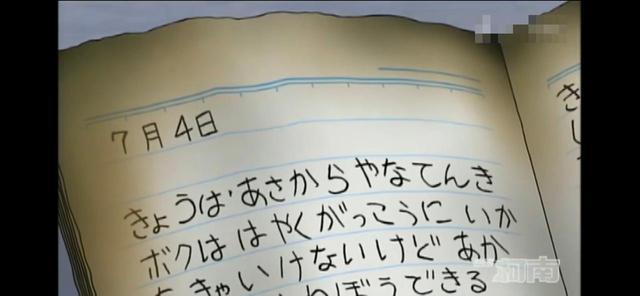 7月4日
きょうは・あさからやなてんき
ボクははやくがっこうにいか
ちゃいけないけどあか
んぼうできる
き
し
柯南